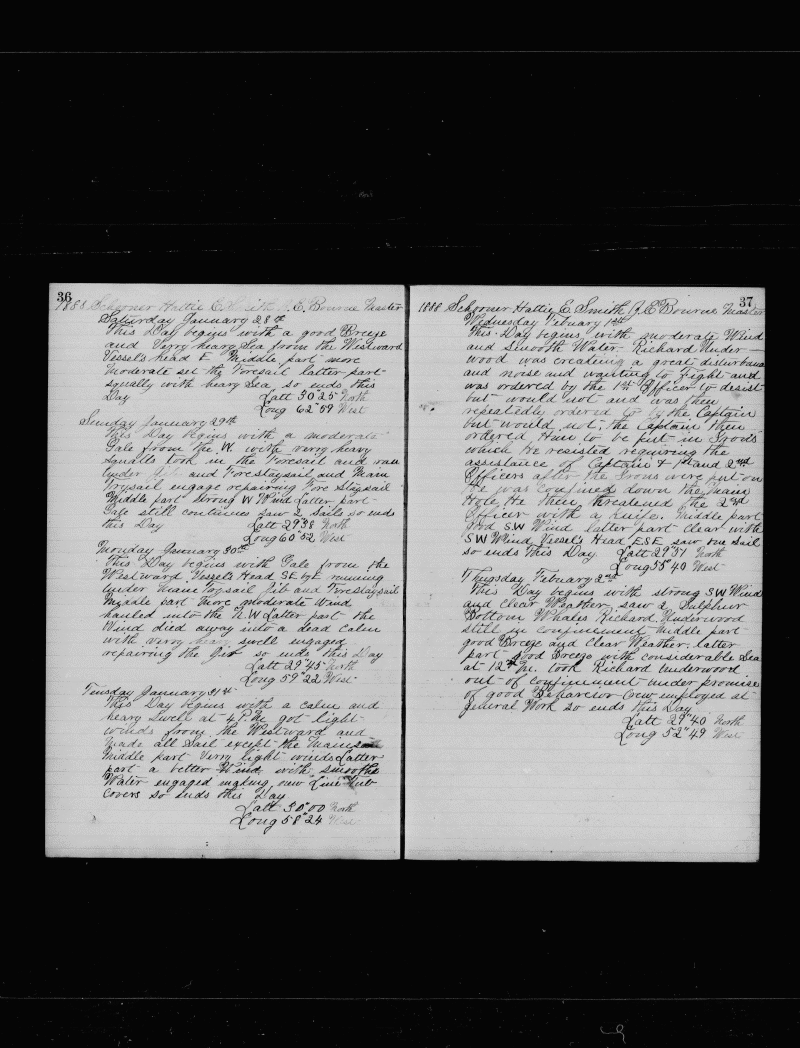 36
1888 Schooner Hattie E. Smith J. E. Bourne Master
Saturday January 28th
This Day begins with a good Breeze
and Verry heavy Sea from the Westward
Vessels head E Middle part more
moderate set the Foresail latter part
squally with heavy Sea so ends this
Day Latt 30"25 North
Long 62"59 West
Sunday January 29th
This Day begins with a moderate
Gale from the W. with verry heavy
Squalls took in the Foresail and ran
under Jib and Forestaysail and Main
Trysail engage repairing Fore Staysail
Middle part strong W Wind Latter part
Gale still continues saw 2 Sails so ends
this Day Latt 29"38 North
Long 60"52 West
Monday January 30th
This Day begins with Gale from the
Westward Vessels Head SE by E running
under Main Trysail Jib and Forestaysail
Middle part more moderate Wind
hauled into the N.W Latter part the
Wind died away into a dead calm
with verry heavy swell engaged
repairing the Jib so ends this Day
Latt 29"45 North
Long 59"22 West
Tuesday January 31st
This Day begins with a calm and
heavy Swell at 4 P.M. got light
winds from the Westward and
made all Sail except the Mains
Middle part Verry light winds Latter
part a better Wind with smoothe
Water engaged making new Line Tub
covers so ends this Day
Latt 30"00 North
Long 58"24 West
37
1888 Schooner Hattie E. Smith J. E. Bourne Master
Wednesday Febuary 1st
This Day begins with moderate Wind
and Smooth Water. Richard Under-
wood was creating a great disturbance
and noise and wanting to Fight and
was ordered by the 1st Officer to desist
but would not and was then
repeatedly ordered to by the Captain
but would not; the Captain then
ordered Him to be put in Irons
which He resisted requiring the
assistance of Captain & 1st and 2nd
Officers after the Irons were put on
he was Confined down the Main
Hole, He then threatened the 2nd
Officer with a Knife. Middle part
good SW Wind latter part clear with
SW Wind Vessels Head ESE saw one Sail
so ends this Day Latt 29"51 North
Long 55"40 West
Thursday Febuary 2nd
This Day begins with strong SW Wind
and clear Weather saw 2 Sulphur
Bottom Whales Richard Underwood
still in confinement middle part
good Breeze and Clear Weather. latter
part good Breeze with considerable Sea
at 12 M. took Richard Underwood
out of confinement under promise
of good Beharvior Crew employed at
general Work so ends this Day
Latt 29"40 North
Long 52"49 West